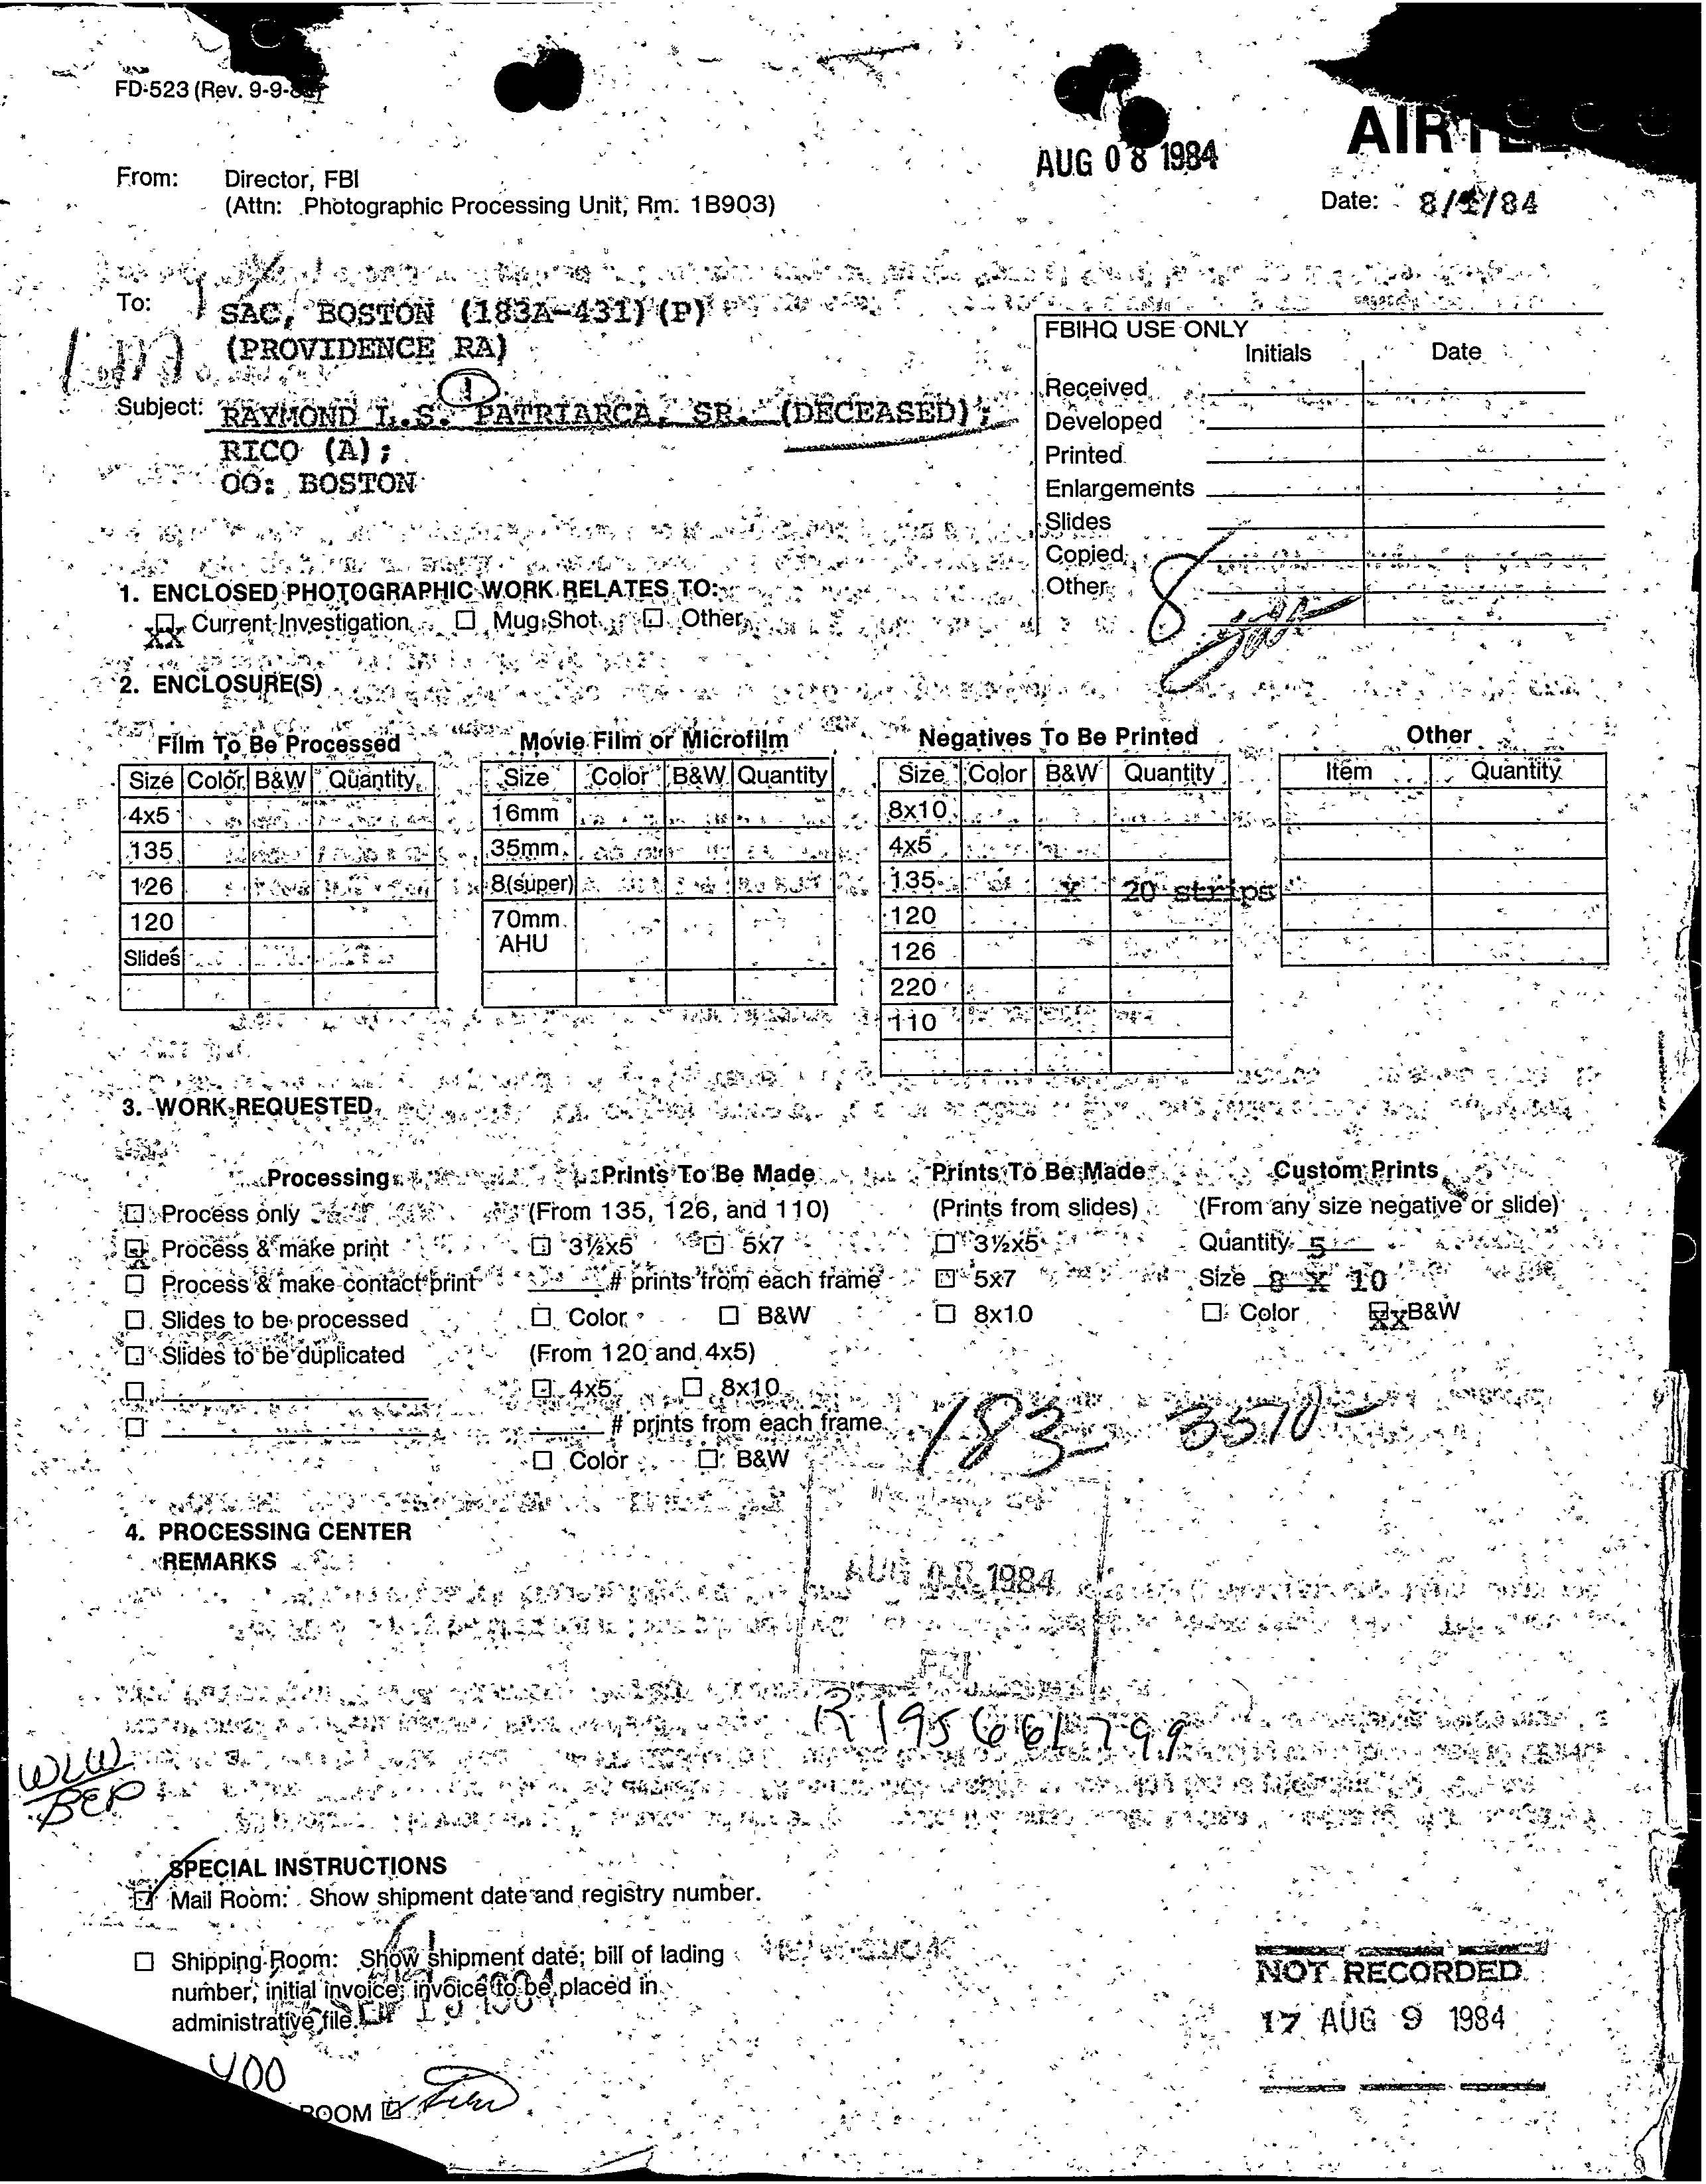 FD-523 (Rev. 9-9-
AUG 08 1984
From: Director, FBI
(Attn: Photographic Processing Unit, Rm. 1B903)
Date: 8/ /84
To: SAC, BOSTON (183A-431) (P)
(PROVIDENCE RA)
Subject: RAYMOND L.S. PATRIARCA, SR. (DECEASED);
RICO (A);
OO: BOSTON
FBIHQ USE ONLY
Initials Date
Received
Developed
Printed
Enlargements
Slides
Copied
Other
1. ENCLOSED PHOTOGRAPHIC WORK RELATES TO:
XX Current Investigation ☐ Mug Shot ☐ Other
2. ENCLOSURE(S)
Film To Be Processed
Size Color B&W Quantity
4x5
135
126
120
Slides
Movie Film or Microfilm
Size Color B&W Quantity
16mm
35mm
8(super)
70mm
AHU
Negatives To Be Printed
Size Color B&W Quantity
8x10
4x5
135 X 20 strips
120
126
220
110
Other
Item Quantity
3. WORK REQUESTED
Processing
☐ Process only
☐ Process & make print
☐ Process & make contact print
☐ Slides to be processed
☐ Slides to be duplicated
Prints To Be Made
(From 135, 126, and 110)
☐ 3½x5 ☐ 5x7
# prints from each frame
☐ Color ☐ B&W
(From 120 and 4x5)
☐ 4x5 ☐ 8x10
# prints from each frame
☐ Color ☐ B&W
Prints To Be Made
(Prints from slides)
☐ 3½x5
☐ 5x7
☐ 8x10
Custom Prints
(From any size negative or slide)
Quantity 5
Size 8 X 10
☐ Color XX B&W
183-3570-
4. PROCESSING CENTER
REMARKS
AUG 08 1984
FBI
R195661799
WLW
BEP
SPECIAL INSTRUCTIONS
☑ Mail Room: Show shipment date and registry number.
☐ Shipping Room: Show shipment date; bill of lading
number; initial invoice; invoice to be placed in
administrative file.
NOT RECORDED
17 AUG 9 1984
400
ROOM